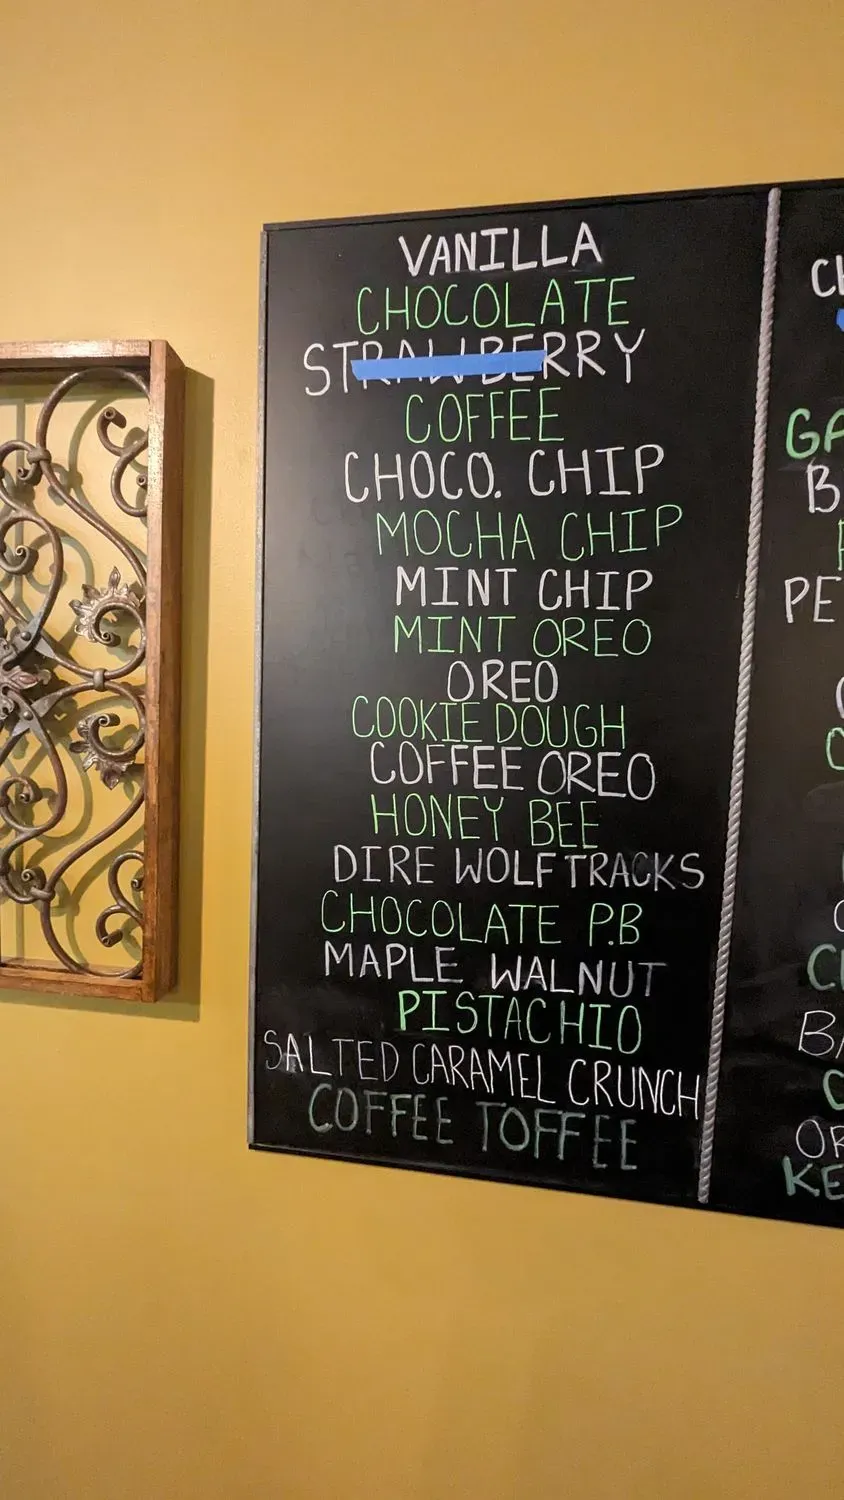 VANILLA
CHOCOLATE
STRAWBERRY
COFFEE
CHOCO. CHIP
MOCHA CHIP
MINT CHIP
MINT OREO
OREO
COOKIE DOUGH
COFFEE OREO
HONEY BEE
DIRE WOLF TRACKS
CHOCOLATE P.B
MAPLE WALNUT
PISTACHIO
SALTED CARAMEL CRUNCH
COFFEE TOFFEE